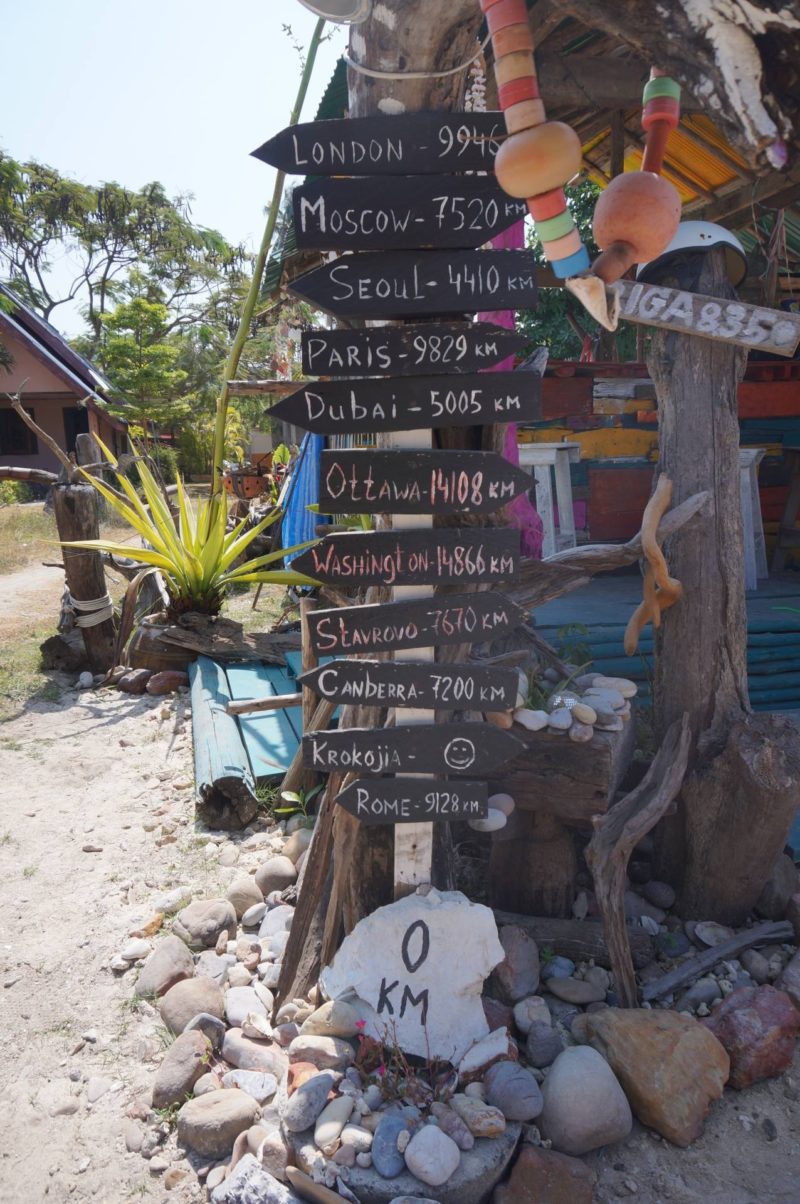 LONDON - 9946
MOSCOW - 7520 KM
SEOUL - 4410 KM
PARIS - 9829 KM
DUBAI - 5005 KM
OTTAWA - 14108 KM
WASHINGTON - 14866 KM
STAVROVO - 7670 KM
CANBERRA - 7200 KM
KROKOJIA -
ROME - 9128 KM.
0
KM